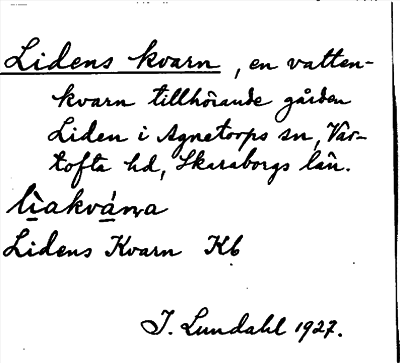 Lidens kvarn, en vatten-
kvarn tillhörande gården
Liden i Agnetorps sn, Var-
tofta hd, Skaraborgs län.
lìakvá​ṇa
Lidens Kvarn Kb
J. Lundahl 1927.